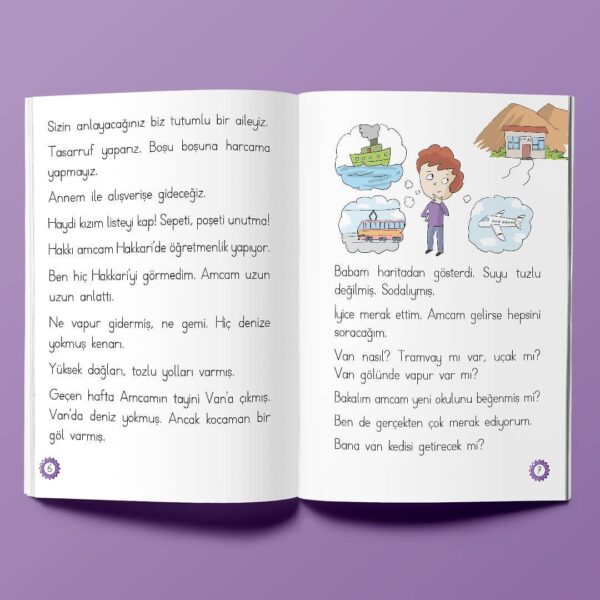 Sizin anlayacağınız biz tutumlu bir aileyiz.
Tasarruf yaparız. Boşu boşuna harcama
yapmayız.
Annem ile alışverişe gideceğiz.
Haydi kızım listeyi kap! Sepeti, poşeti unutma!
Hakkı amcam Hakkari'de öğretmenlik yapıyor.
Ben hiç Hakkari'yi görmedim. Amcam uzun
uzun anlattı.
Ne vapur gidermiş, ne gemi. Hiç denize
yokmuş kenarı.
Yüksek dağları, tozlu yolları varmış.
Geçen hafta Amcamın tayini Van'a çıkmış.
Van'da deniz yokmuş. Ancak kocaman bir
göl varmış.
6
Babam haritadan gösterdi. Suyu tuzlu
değilmiş. Sodalıymış.
İyice merak ettim. Amcam gelirse hepsini
soracağım.
Van nasıl? Tramvay mı var, uçak mı?
Van gölünde vapur var mı?
Bakalım amcam yeni okulunu beğenmiş mi?
Ben de gerçekten çok merak ediyorum.
Bana van kedisi getirecek mi?
7